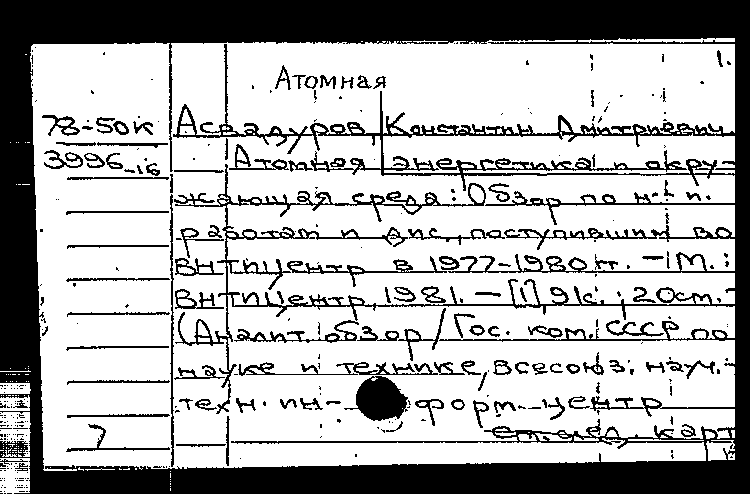 1.
Атомная
78-50к Асвадуров, Константин Дмитриевич.
3996-16 Атомная энергетика и окру-
жающая среда: Обзор по н.-и.
работам и дис., поступившим во
ВНТИЦентр в 1977-1980 гг. – М.:
ВНТИЦентр, 1981. – [1], 91 с.; 20 см. –
(Аналит. обзор / Гос. ком. СССР по
науке и технике, Всесоюз. науч.-
техн. ин- форм. центр
7 см. след. карт